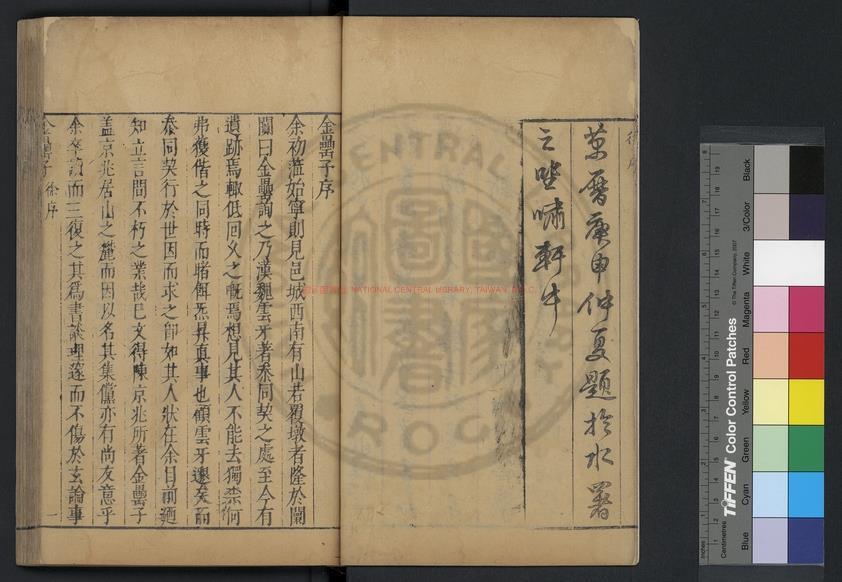 徐序
萬曆庚申仲夏題於水署
之嘯軒中
金罍子序
余初蒞始寧則見邑城西南有山若覆墩者隆於闤
闠曰金罍詢之乃漢魏雲牙著叅同契之處至今有
遺跡焉輙低回久之慨焉想見其人不能去獨柰何
弗獲偕之同時而睹餌炁昇真事也顧雲牙邈矣而
叅同契行於世因而求之卽如其人狀在余目前廼
知立言間不朽之業哉已又得陳京兆所著金罍子
蓋京兆居山之麓而因以名其集儻亦有尚友意乎
余卒讀而三復之其爲書談理邃而不傷於玄論事
金罍子 徐序 一
NATIONAL CENTRAL LIBRARY, TAIWAN, R.O.C.
TIFFEN Color Control Patches
© The Tiffen Company, 2007
Inches
Centimetres
Blue
Cyan
Green
Yellow
Red
Magenta
White
3/Color
Black